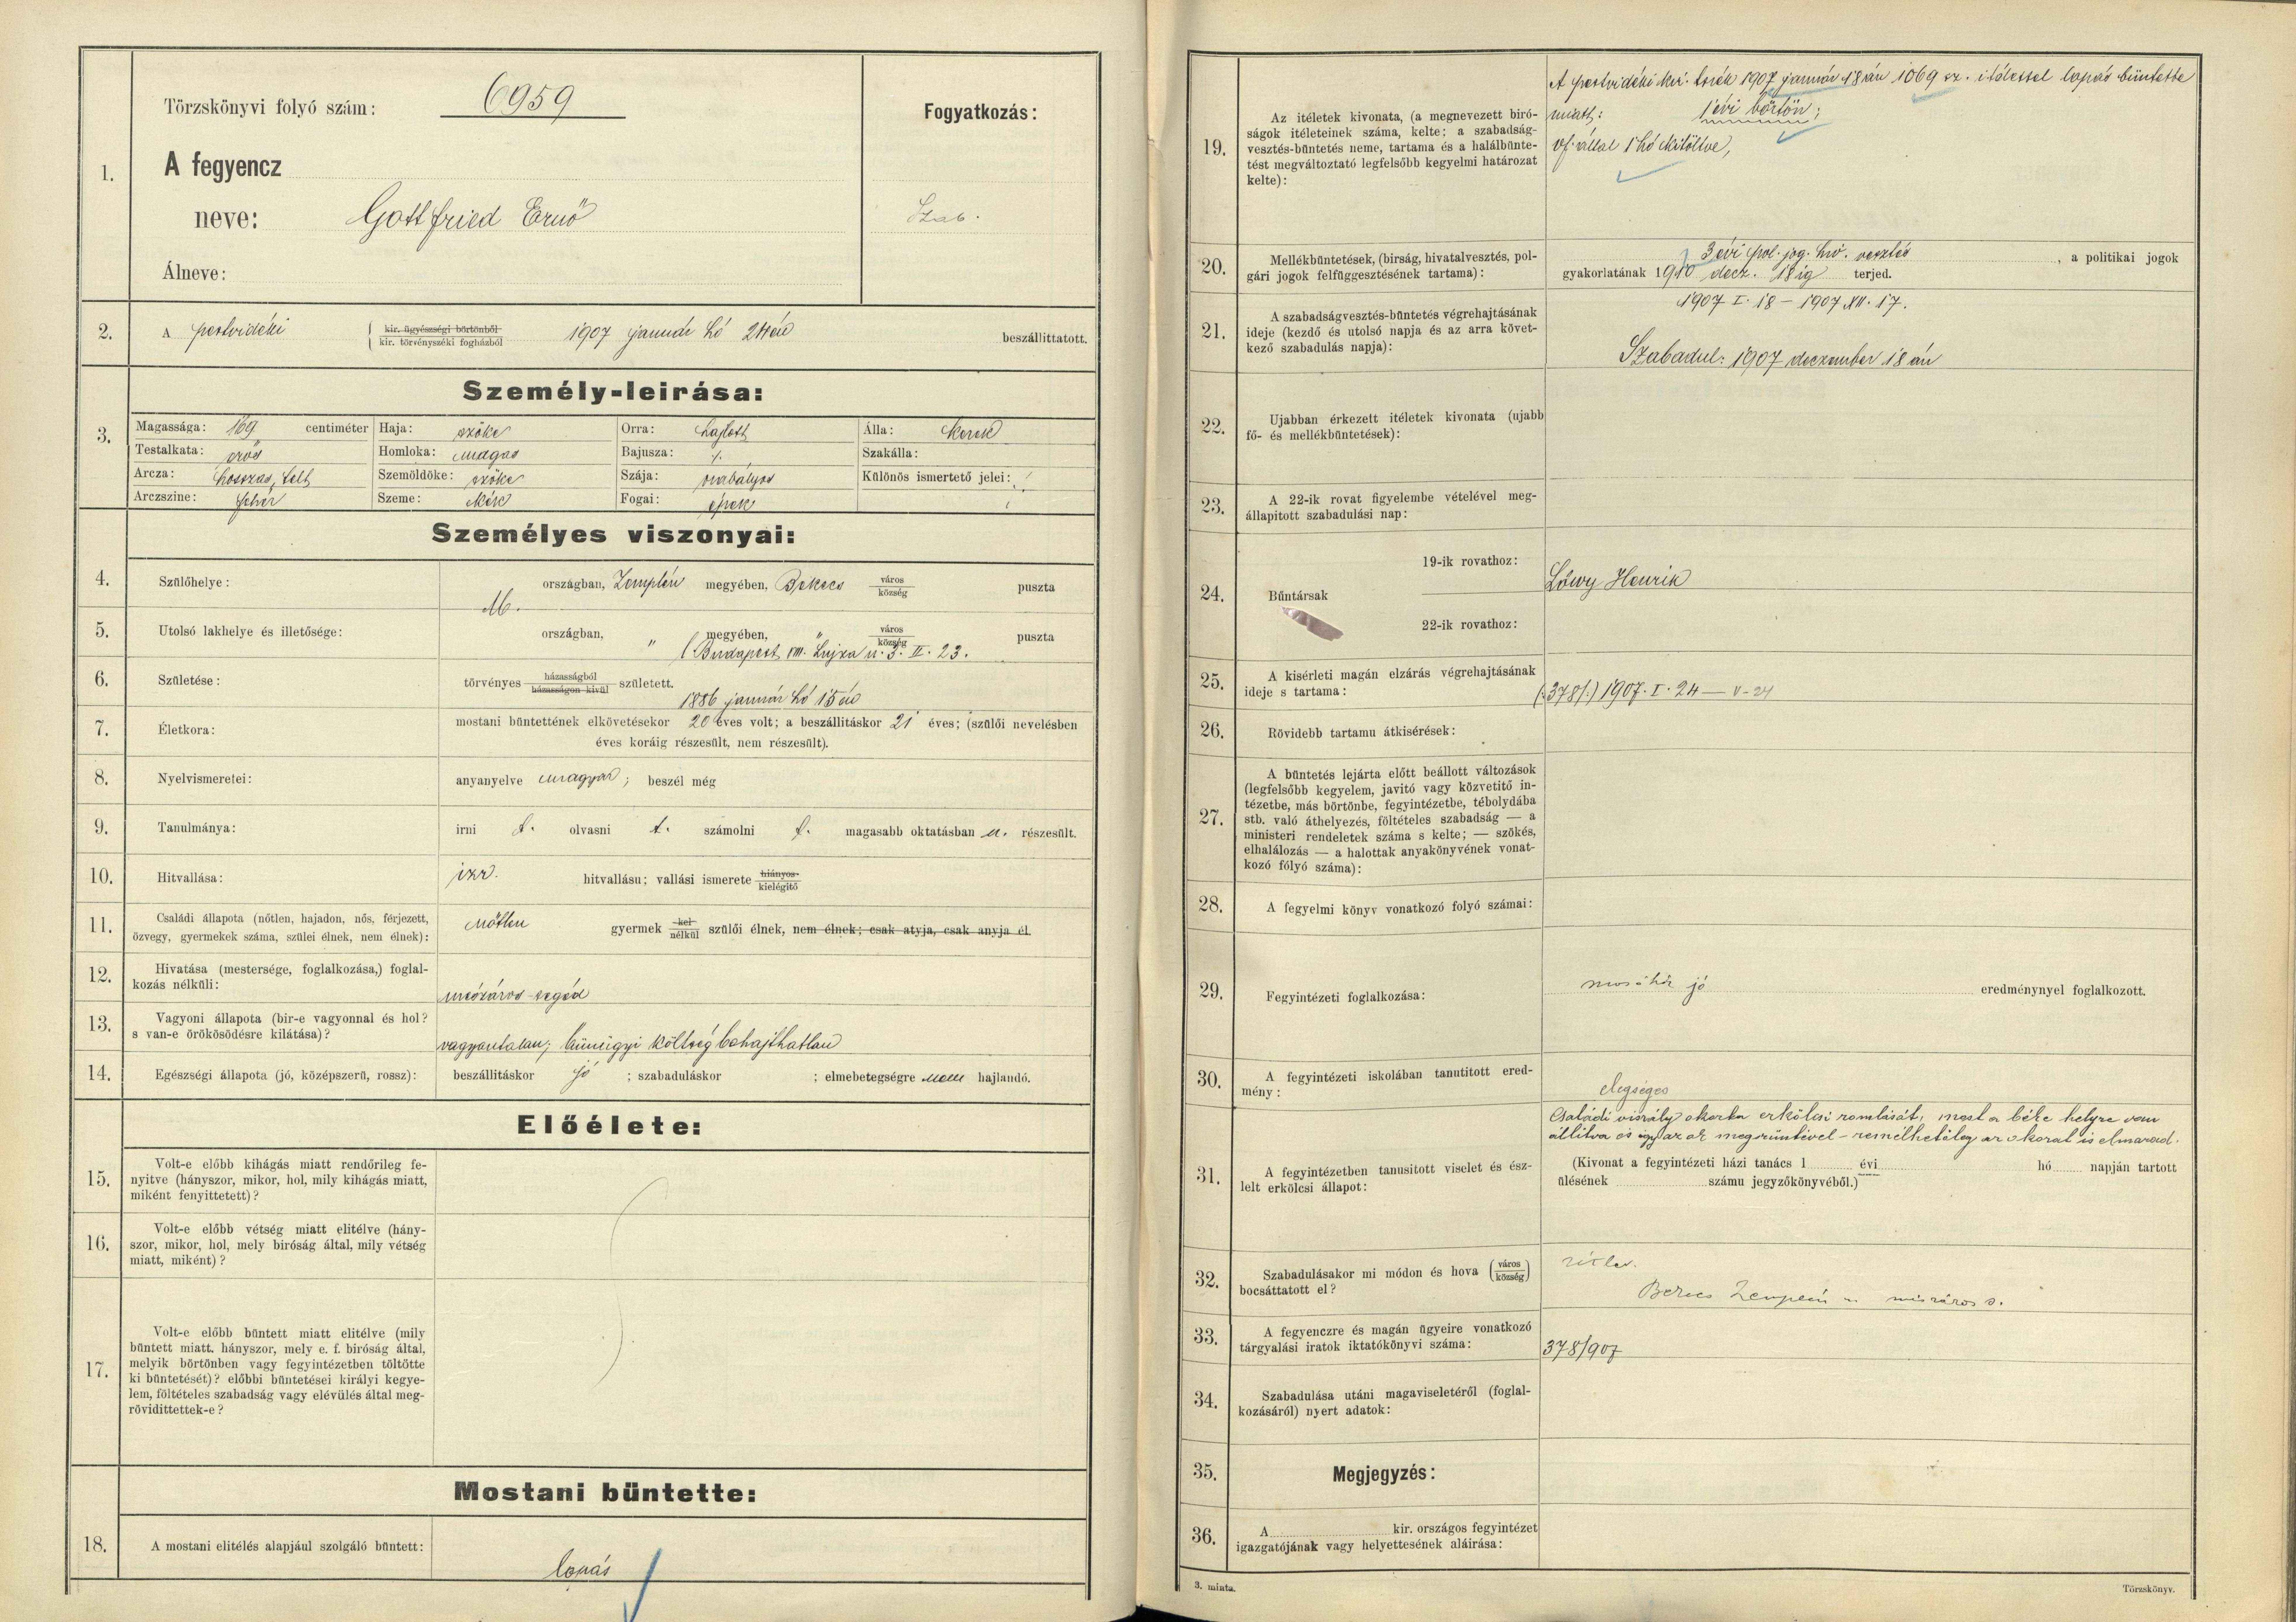 Törzskönyvi folyó szám: 6959
Fogyatkozás:
1.
A fegyencz
neve: Gottfried Ernő
Szab.
Álneve:
2. A pestvidéki { kir. ügyészségi börtönből
kir. törvényszéki fogházból 1907 január hó 24én beszállittatott.
Személy-leirása:
3.
Magassága: 169 centiméter Haja: szőke Orra: hajlott Álla: kerek
Testalkata: erős Homloka: magas Bajusza: ∕. Szakálla:
Arcza: hosszas, telt Szemöldöke: szőke Szája: szabályos Különös ismertető jelei:
Arczszine: fehér Szeme: kék Fogai: épek
Személyes viszonyai:
4. Szülőhelye: M. országban, Zemplén megyében, Bekecs város
község puszta
5. Utolsó lakhelye és illetősége: országban, " megyében, " város
község puszta
(Budapest VIII. Lujza u. 3. II. 23.
6. Születése: törvényes házasságból
házasságon kivül született.
1886 január hó 15én
7. Életkora: mostani büntettének elkövetésekor 20 éves volt; a beszállitáskor 21 éves; (szülői nevelésben
éves koráig részesült, nem részesült).
8. Nyelvismeretei: anyanyelve magyar; beszél még
9. Tanulmánya: irni t. olvasni t. számolni t. magasabb oktatásban n. részesült.
10. Hitvallása: izr. hitvallásu; vallási ismerete hiányos
kielégitő
11. Családi állapota (nőtlen, hajadon, nős, férjezett,
özvegy, gyermekek száma, szülei élnek, nem élnek):
nőtlen gyermek kel
nélkül szülői élnek, nem élnek; csak atyja, csak anyja él.
12. Hivatása (mestersége, foglalkozása,) foglal-
kozás nélküli:
mészáros segéd
13. Vagyoni állapota (bir-e vagyonnal és hol?
s van-e örökösödésre kilátása)?
vagyontalan; bünügyi költség behajthatlan
14. Egészségi állapota (jó, középszerü, rossz): beszállitáskor jó ; szabaduláskor ; elmebetegségre nem hajlandó.
Előélete:
15. Volt-e előbb kihágás miatt rendőrileg fe-
nyitve (hányszor, mikor, hol, mily kihágás miatt,
miként fenyittetett)?
16. Volt-e előbb vétség miatt elitélve (hány-
szor, mikor, hol, mely biróság által, mily vétség
miatt, miként)?
17. Volt-e előbb büntett miatt elitélve (mily
büntett miatt. hányszor, mely e. f. biróság által,
melyik börtönben vagy fegyintézetben töltötte
ki büntetését)? előbbi büntetései királyi kegye-
lem, föltételes szabadság vagy elévülés által meg-
rövidittettek-e?
Mostani büntette:
18. A mostani elitélés alapjául szolgáló büntett:
lopás
19. Az itéletek kivonata, (a megnevezett biró-
ságok itéleteinek száma, kelte; a szabadság-
vesztés-büntetés neme, tartama és a halálbünte-
tést megváltoztató legfelsőbb kegyelmi határozat
kelte):
A pestvidéki kir. tszék 1907 január 18án 1069 sz. itélettel lopás büntette
miatt: 1 évi börtön;
vf. által 1 hó kitöltve,
20. Mellékbüntetések, (birság, hivatalvesztés, pol-
gári jogok felfüggesztésének tartama):
3 évi pol. jog. hiv. vesztés , a politikai jogok
gyakorlatának 1910 decz. 18ig terjed.
21. A szabadságvesztés-büntetés végrehajtásának
ideje (kezdő és utolsó napja és az arra követ-
kező szabadulás napja):
1907 I. 18 – 1907 XII. 17.
Szabadul: 1907 deczember 18án
22. Ujabban érkezett itéletek kivonata (ujabb
fő- és mellékbüntetések):
23. A 22-ik rovat figyelembe vételével meg-
állapitott szabadulási nap:
24. Büntársak
19-ik rovathoz: Löwy Henrik
22-ik rovathoz:
25. A kisérleti magán elzárás végrehajtásának
ideje s tartama:
(:378/:) 1907. I. 24 — V – 24
26. Rövidebb tartamu átkisérések:
27. A büntetés lejárta előtt beállott változások
(legfelsőbb kegyelem, javitó vagy közvetitő in-
tézetbe, más börtönbe, fegyintézetbe, tébolydába
stb. való áthelyezés, föltételes szabadság — a
ministeri rendeletek száma s kelte; — szökés,
elhalálozás — a halottak anyakönyvének vonat-
kozó fólyó száma):
28. A fegyelmi könyv vonatkozó folyó számai:
29. Fegyintézeti foglalkozása: mosóház jó eredménynyel foglalkozott.
30. A fegyintézeti iskolában tanutitott ered-
mény:
elegséges
31. A fegyintézetben tanusitott viselet és ész-
lelt erkölcsi állapot:
Családi viszály okozta erkölcsi romlását, most a béke helyre van
állitva és igy az ok megszüntével – remélhetőleg az okozat is elmarad.
(Kivonat a fegyintézeti házi tanács 1 évi hó napján tartott
ülésének számu jegyzőkönyvéből.)
32. Szabadulásakor mi módon és hova (város
község)
bocsáttatott el?
Bekecs Zemplén m mészáros s.
33. A fegyenczre és magán ügyeire vonatkozó
tárgyalási iratok iktatókönyvi száma:
378/907
34. Szabadulása utáni magaviseletéről (foglal-
kozásáról) nyert adatok:
35. Megjegyzés:
36. A kir. országos fegyintézet
igazgatójának vagy helyettesének aláirása:
3. minta.
Törzskönyv.